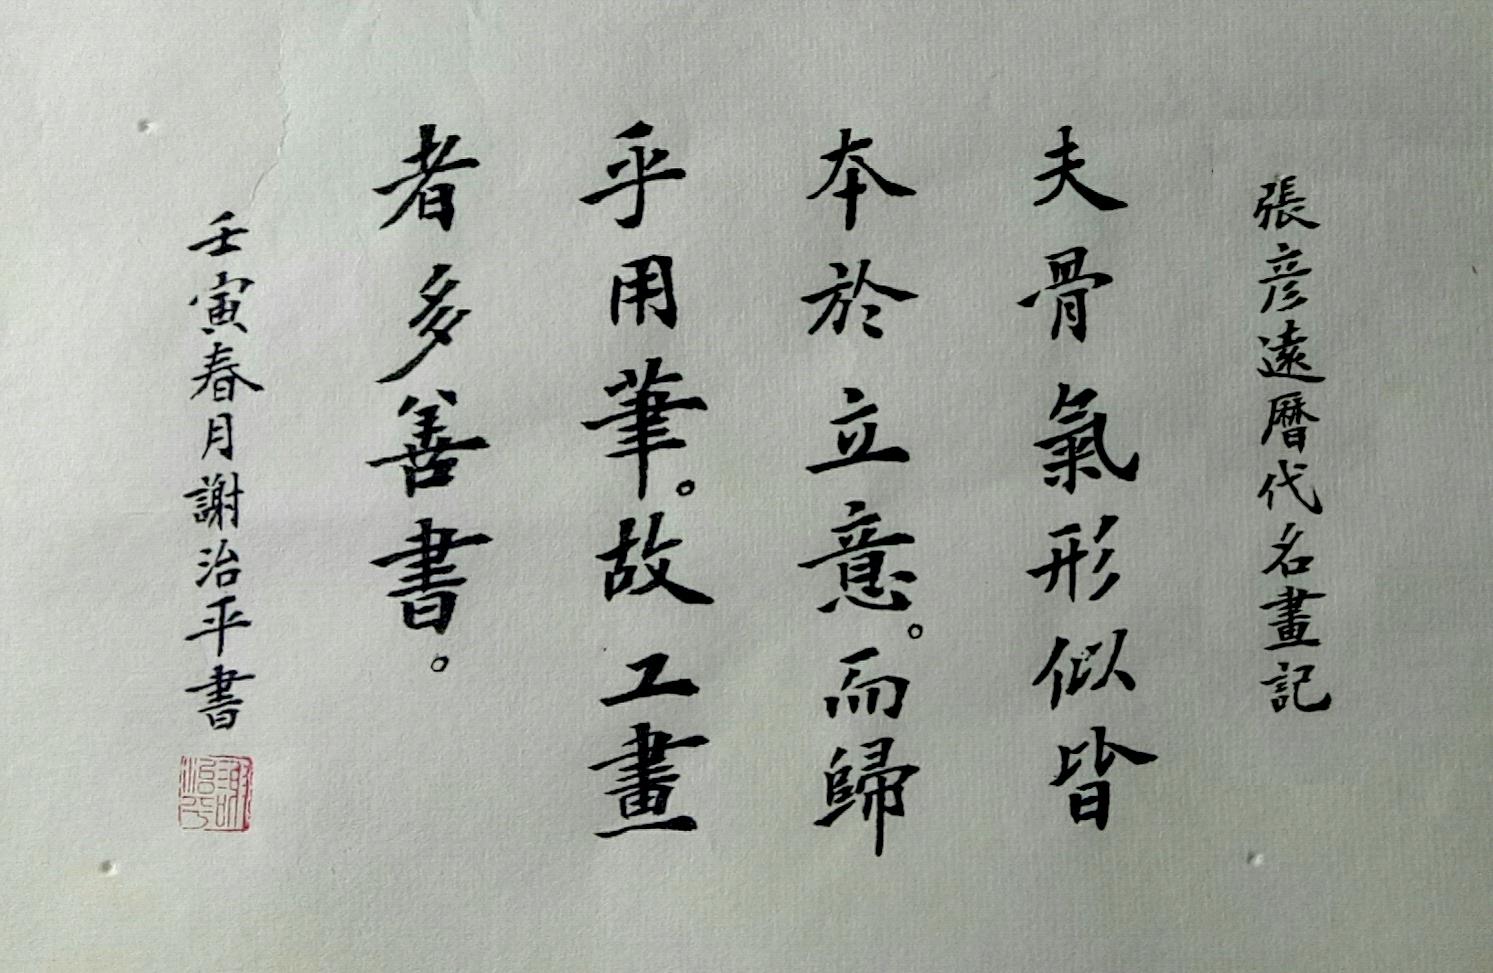 張彦遠曆代名畫記
夫骨氣形似皆
本於立意。而歸
乎用筆。故工畫
者多善書。
壬寅春月謝治平書
謝治平